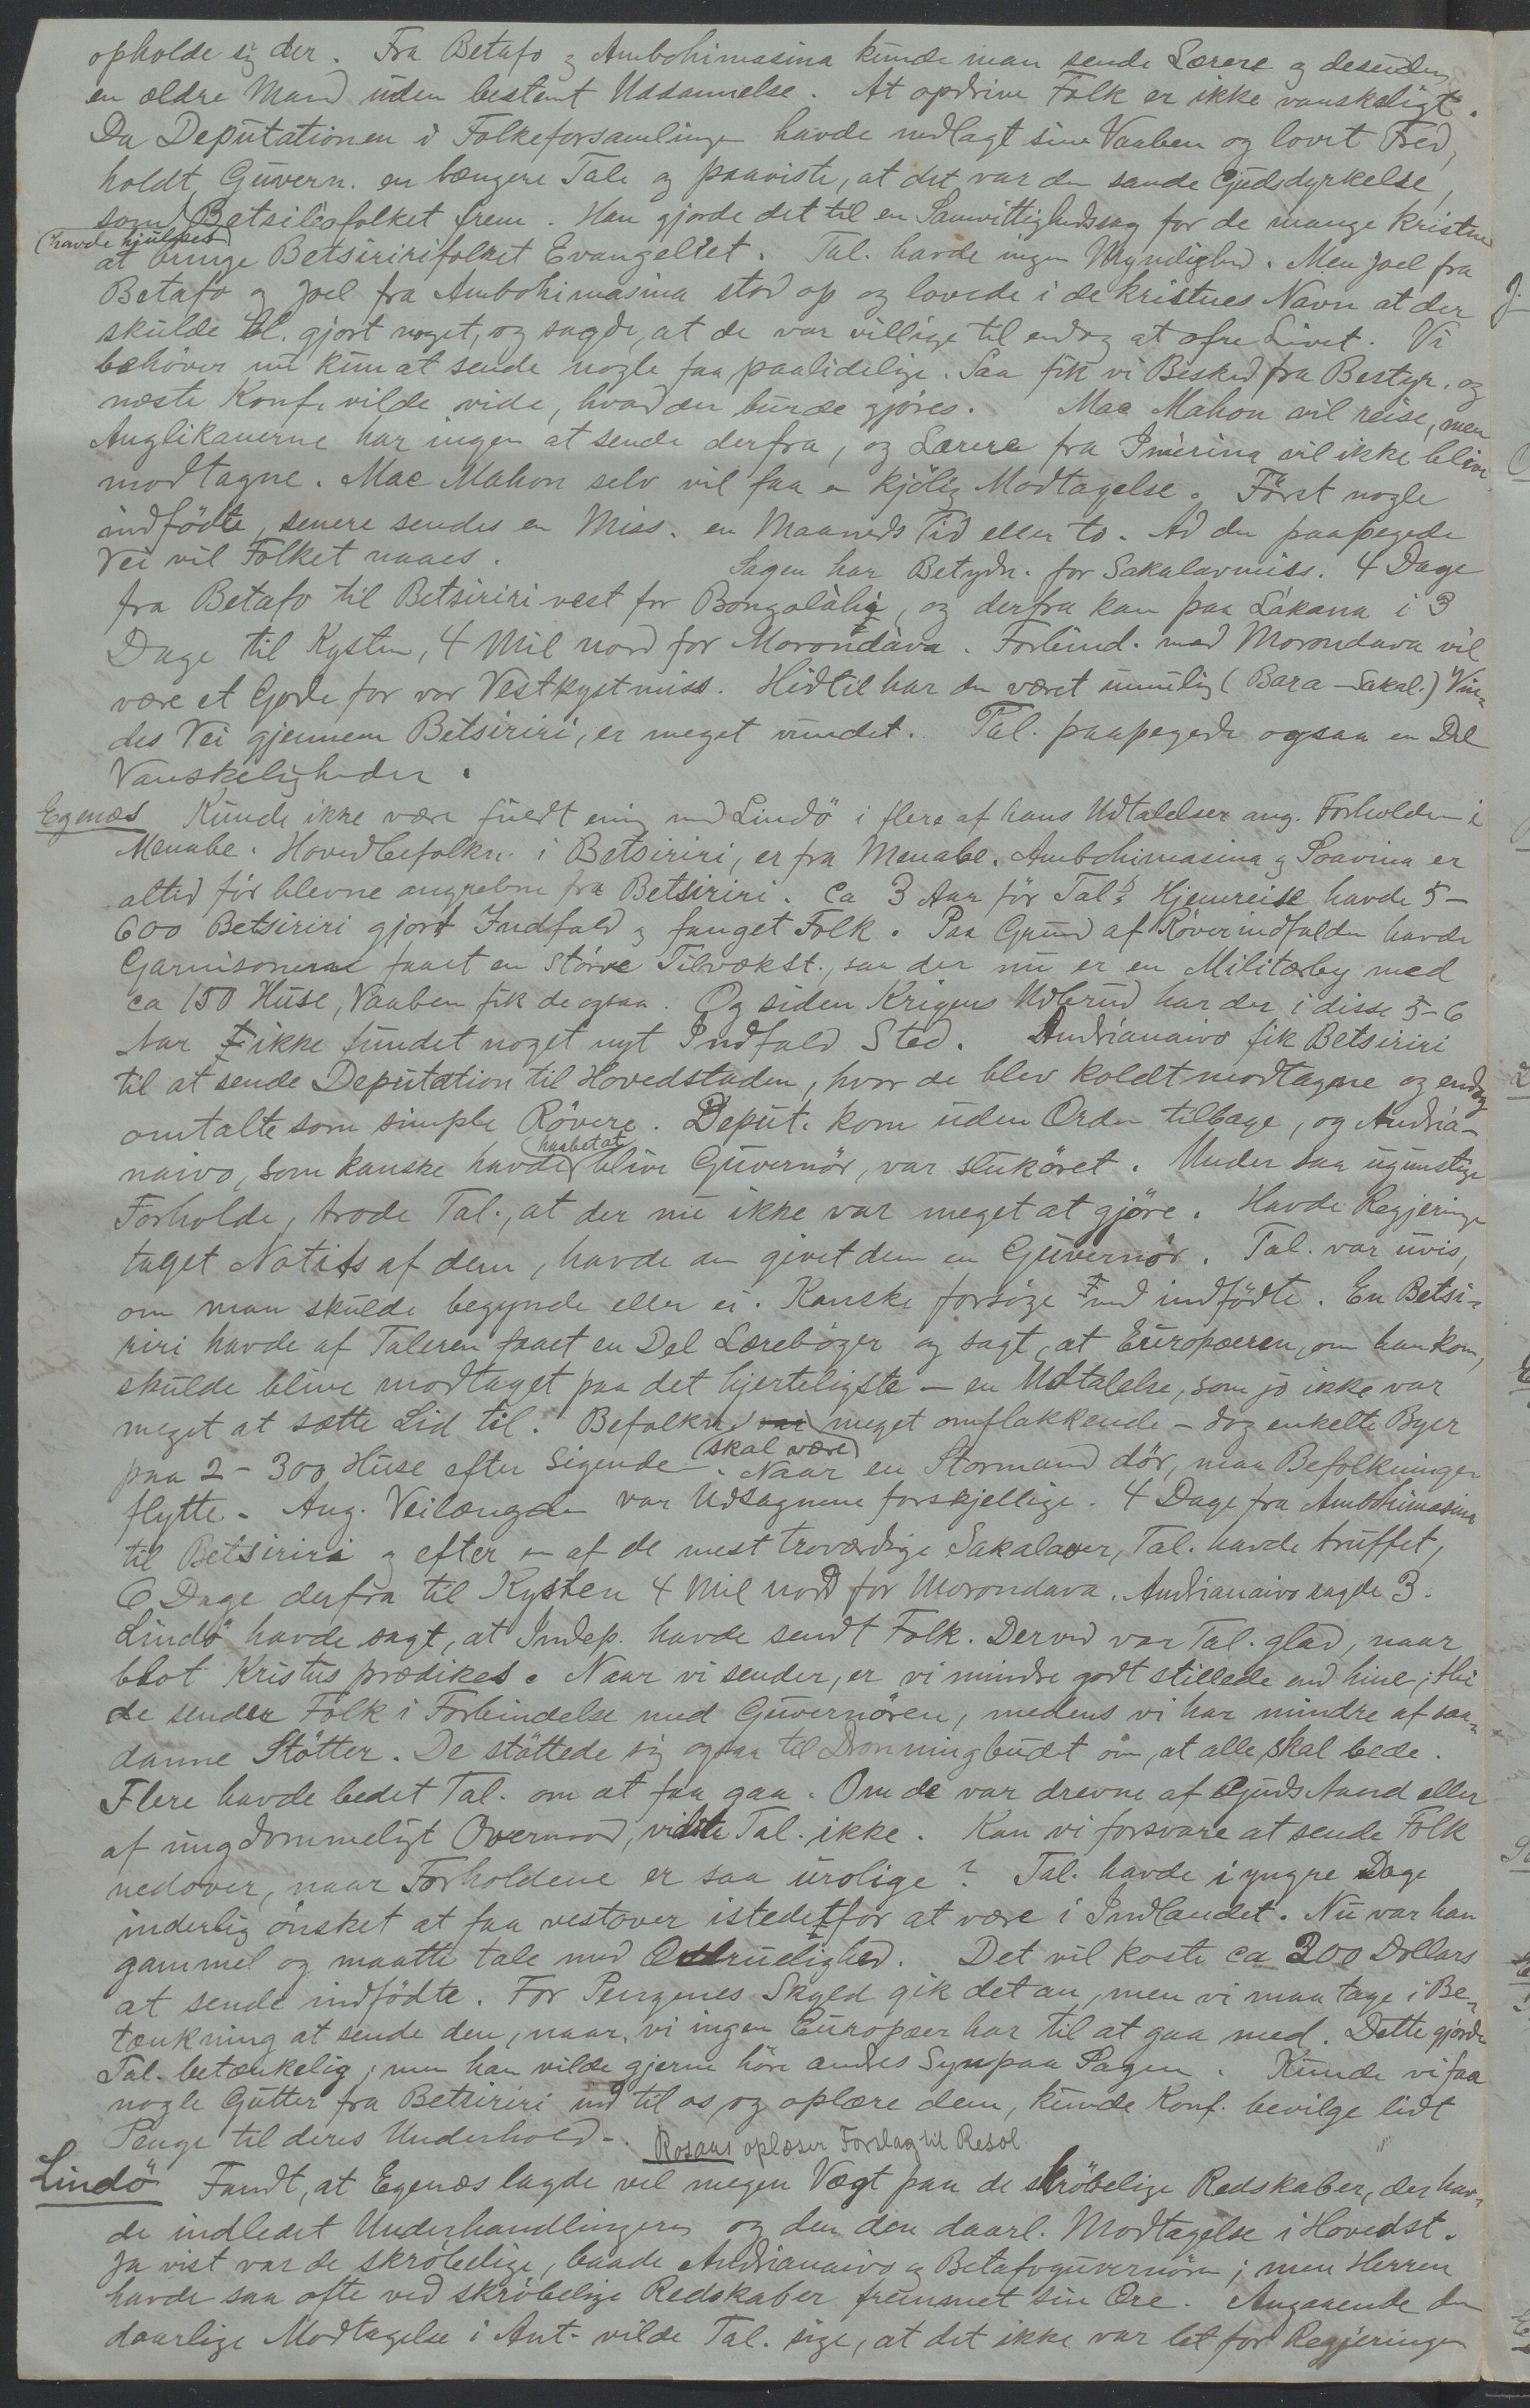 opholde sig der. Fra Betafo og Ambohimasina kunde man sende Lærere og desuden
en ældre Mand uden bestemt Uddannelse. At opdrive Folk er ikke vanskeligt.
Da Deputationen i Folkeforsamlingen havde nedlagt sine Vaaben og lovet Fred,
holdt Guvern. en længere Tale og paaviste, at det var den sande Gudsdyrkelse,
som (havde hjulpet) Betsileofolket frem. Han gjorde det til en Samvittighedssag for de mange Kristne
at bringe Betsiririfolket Evangeliet. Tal. havde ingen Myndighed. Men Joel fra
Betafo og Joel fra Ambohimasina stod op og lovede i de kristnes Navn at der
skulde bl. gjort noget, og sagde, at de var villige til endog at ofre Livet. Vi
behöver nu kun at sende nogle faa paalidelige. Saa fik vi Besked fra Bestyr. og
næste Konf. vilde vide, hvad der burde gjöres. Mac Mahon vil reise, men
Anglikanerne har ingen at sende derfra, og Lærere fra Imerina vil ikke blive
modtagne. Mac Mahon selv vil faa en kjölig Modtagelse. Först nogle
indfödte, senere sendes en Miss. en Maaneds Tid eller to. Ad den paapegede
Vei vil Folket naaes. Sagen har Betydn. for Sakalavmiss. 4 Dage
fra Betafo til Betsiriri vest for Bongolàhy, og derfra kan paa Lákana i 3
Dage til Kysten, 4 Mil nord for Morondàva. Forbind. med Morondava vil
være et Gode for vor Vestkystmiss. Hidtil har den været umulig (Bara-Sakal.) Vin-
des Vei gjennem Betsiriri, er meget vundet. Tal. paapegede ogsaa en Del
Vanskeligheder.
Egenæs Kunde ikke være fuldt enig med Lindö i flere af hans Udtalelser ang. Forholdene i
Menabe. Hovedbefolkn. i Betsiriri, er fra Menabe. Ambohimasina og Soavina er
altid för blevne angrebne fra Betsiriri. Ca 3 Aar för Tal's Hjemreise havde 5-
600 Betsiriri gjort Indfald og fanget Folk. Paa Grund af Röverindfaldene havde
Garnisonerne faaet en större Tilvækst, saa der nu er en Militærby med
ca 150 Huse, Vaaben fik de ogsaa. Og siden Krigens Udbrud har der i disse 5-6
Aar ikke fundet noget nyt Indfald Sted. Andrianaivo fik Betsiriri
til at sende Deputation til Hovedstaden, hvor de blev koldt modtagne og endog
omtalte som simple Rövere. Deput. kom uden Orden tilbage, og Andria-
naivo, som kanske havde (haabet at) blive Guvernör, var sluköret. Under saa ugunstige
Forholde, trode Tal., at der nu ikke var meget at gjöre. Havde Regjeringen
taget Notits af dem, havde den givet dem en Guvernör. Tal. var uvis,
om man skulde begynde eller ei. Kanske forsöge med indfödte. En Betsi-
riri havde af Taleren faaet en Del Lærebøger og sagt, at Europæeren, om han kom,
skulde blive modtaget paa det hjerteligste – en Udtalelse, som jo ikke var
meget at sætte Lid til. Befolkn. (skal være) meget omflakkende – dog enkelte Byer
paa 2-300 Huse efter Sigende. Naar en Stormand dör, maa Befolkningen
flytte. Ang. Veilængden var Udsagnene forskjellige. 4 Dage fra Ambohimasina
til Betsiriri og efter en af de mest troværdige Sakalaver, Tal. havde truffet,
6 Dage derfra til Kysten 4 Mil nord for Morondava. Andrianaivo sagde 3.
Lindö havde sagt, at Indep. havde sendt Folk. Derved var Tal. glad, naar
blot Kristus prædikes. Naar vi sender, er vi mindre godt stillede end hine; thi
de sender Folk i Forbindelse med Guvernören, medens vi har mindre af saa-
danne Stötter. De stöttede sig ogsaa til Dronningbudet om, at alle skal bede.
Flere havde bedet Tal. om at faa gaa. Om de var drevne af Guds Aand eller
af ungdommeligt Overmod, vidste Tal. ikke. Kan vi forsvare at sende Folk
nedover, naar Forholdene er saa urolige? Tal. havde i yngre Dage
inderlig önsket at faa vestover istedetfor at være i Indlandet. Nu var han
gammel og maatte tale med Ædruelighed. Det vil koste ca 300 Dollars
at sende indfödte. For Pengenes Skyld gik det an, men vi maa tage i Be-
tænkning at sende dem, naar vi ingen Europæer har til at gaa med. Dette gjorde
Tal. betænkelig; men han vilde gjerne höre andres Syn paa Sagen. Kunde vi faa
nogle Gutter fra Betsiriri ind til os og oplære dem, kunde Konf. bevilge lidt
Penge til deres Underhold. Rosaas oplæser Forslag til Resol.
Lindö Fandt, at Egenæs lagde vel megen Vægt paa de skröbelige Redskaber, der hav-
de indledet Underhandlingerne og den daarl. Modtagelse i Hovedst.
Ja vist var de skröbelige, baade Andrianaivo og Betafoguvernören; men Herren
havde saa ofte ved skröbelige Redskaber fremmet sin Ære. Angaaende den
daarlige Modtagelse i Ant. vilde Tal. sige, at det ikke var let for Regjeringen